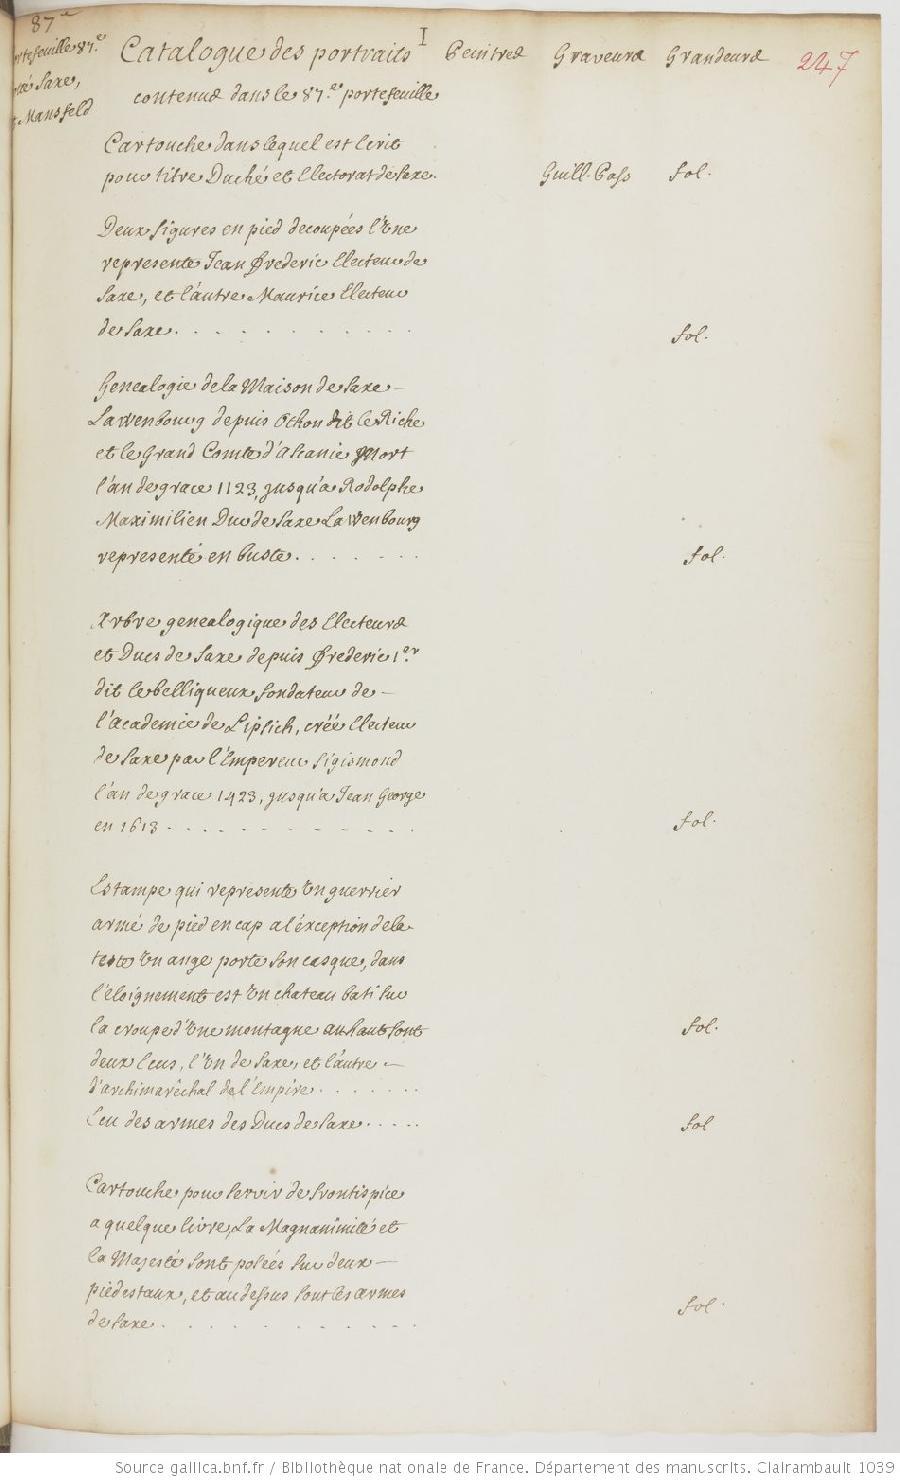 87e
portefeuille 87.e
Saxe,
Mansfeld
I
Catalogue des portraits Peintres Graveurs Grandeurs 247
contenus dans le 87.e portefeuille
Cartouche dans lequel est écrit
pour titre Duché et Electorat de Saxe. Guill. Pass fol.
Deux figures en pied decoupées l'Une
represente Jean frederic Electeur de
Saxe, et l'autre Maurice Electeur
de Saxe. . . . . . . . . . . fol.
Genealogie de la Maison de Saxe-
Lawenbourg depuis Othon dit le Riche
et le Grand Comte d'Ahanie Mort
l'an de grace 1123, jusqu'a Rodolphe
Maximilien Duc de Saxe Lawenbourg
representé en buste. . . . . . . fol.
Arbre genealogique des Electeurs
et Ducs de Saxe depuis frederic 1.er
dit le belliqueux fondateur de -
l'academie de Lipsich, créé Electeur
de Saxe par l'Empereur Sigismond
l'an de grace 1423, jusqu'a Jean George
en 1613 . . . . . . . . . . fol.
Estampe qui represente Un guerrier
armé de pied en cap a l'éxception de la
teste Un ange porte son casque, dans
l'éloignement est Un chateau bati sur
la croupe d'Une montagne au haut sont fol.
deux Ecus, l'Un de Saxe, et l'autre -
d'archimarêchal de l'Empire. . . . . . .
Ecu des armes des Ducs de Saxe. . . . . fol
Cartouche pour servir de frontispice
a quelque livre, La Magnanimité et
la Majesté sont posées sur deux -
piédestaux, et au dessus sont les armes
de Saxe. . . . . . . . . . fol.
Source gallica.bnf.fr / Bibliothèque nationale de France. Département des manuscrits. Clairambault 1039